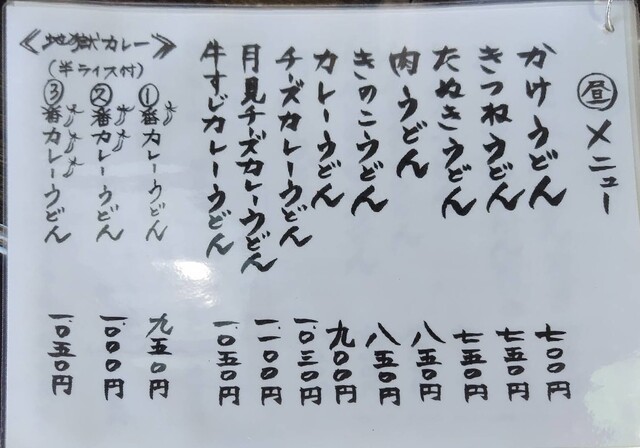 昼メニュー
かけうどん 七〇〇円
きつねうどん 七五〇円
たぬきうどん 七五〇円
肉うどん 八五〇円
きのこうどん 八五〇円
カレーうどん 九〇〇円
チーズカレーうどん 一〇三〇円
月見チーズカレーうどん 一一〇〇円
牛すじカレーうどん 一〇五〇円
《地獄カレー》
(半ライス付)
①番カレーうどん 九五〇円
②番カレーうどん 一〇〇〇円
③番カレーうどん 一〇五〇円